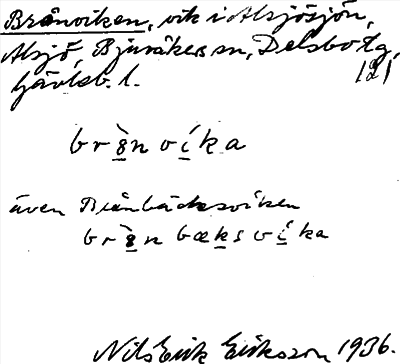 Brånviken, vik i Alsjösjön,
Alsjö, Bjuråkers sn, Delsbo tg,
Gävleb. l.
121
brə̀nvíka
även Brånbäcksviken
brə̀nbæksvíka
Nils Erik Eriksson 1936.